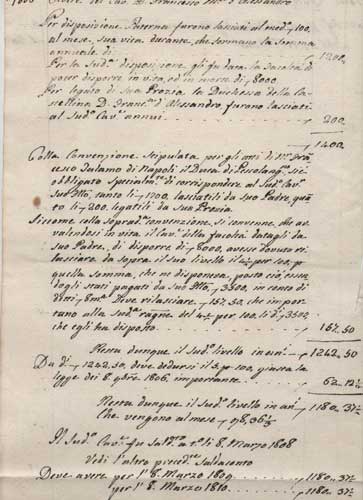 Per disposizione Paterna furono lasciati al med.º 100.
al mese, sua vita durante, che formano la somma
annuale di 1200.
Per la Sud.ª disposizione gli fu data la facoltà di
poter disporre in vita, ed in morte di 8000.
Per legato di Sua Prozia la Duchessa della Ca=
stellina D. Franc.ª d'Alessandro, furono lasciati
al Sud.º Cav.º annui 200.
1400
Colla Convenzione Stipulata per gli atti di N.r Fran=
cesco di Napoli il Duca di Pescolang.º si è
obbligato Specialm.te di corrispondere al Sud.º Cav.º
Suo F.llo, tanto li 1200 lasciatili da Suo Padre, quan=
to li 200 legatili da Sua Prozia.
Siccome colla sopradª convenzione si convenne, che av=
valendosi in vita il Cav.º della facoltà datagli da
Suo Padre, di disporre di 8000, avesse dovuto ri=
lasciare da sopra il suo livello il 4½ per 100, p.
quella Somma, che ne disponeva, posto ciò, essen=
dogli stati pagati da Suo F.llo 3500, in conto di
detti 8m.ª Deve rilasciare 157.50 che impor=
tano alla Sud.ª ragne del 4½ per 100, li d.i 3500
che egli ha disposto 157.50
Resta dunque il Sud.º livello in an.i 1242.50
Da d.i 1242.50, deve dedursi il 5. p. 100, giusta la
legge dei 8. 9bre 1806, importante 62.12½
Resta dunque il sud.º livello in an.i 1180.37½
Che vengono al mese 98.36½
Il Sud.º Cav.º fu Sal.to a t.º li 8. Marzo 1808
Vedi l'altro preced.te Saldaconto
Deve avere per l'8 Marzo 1809 1180.37½
per l'8 Marzo 1810 1180.37½